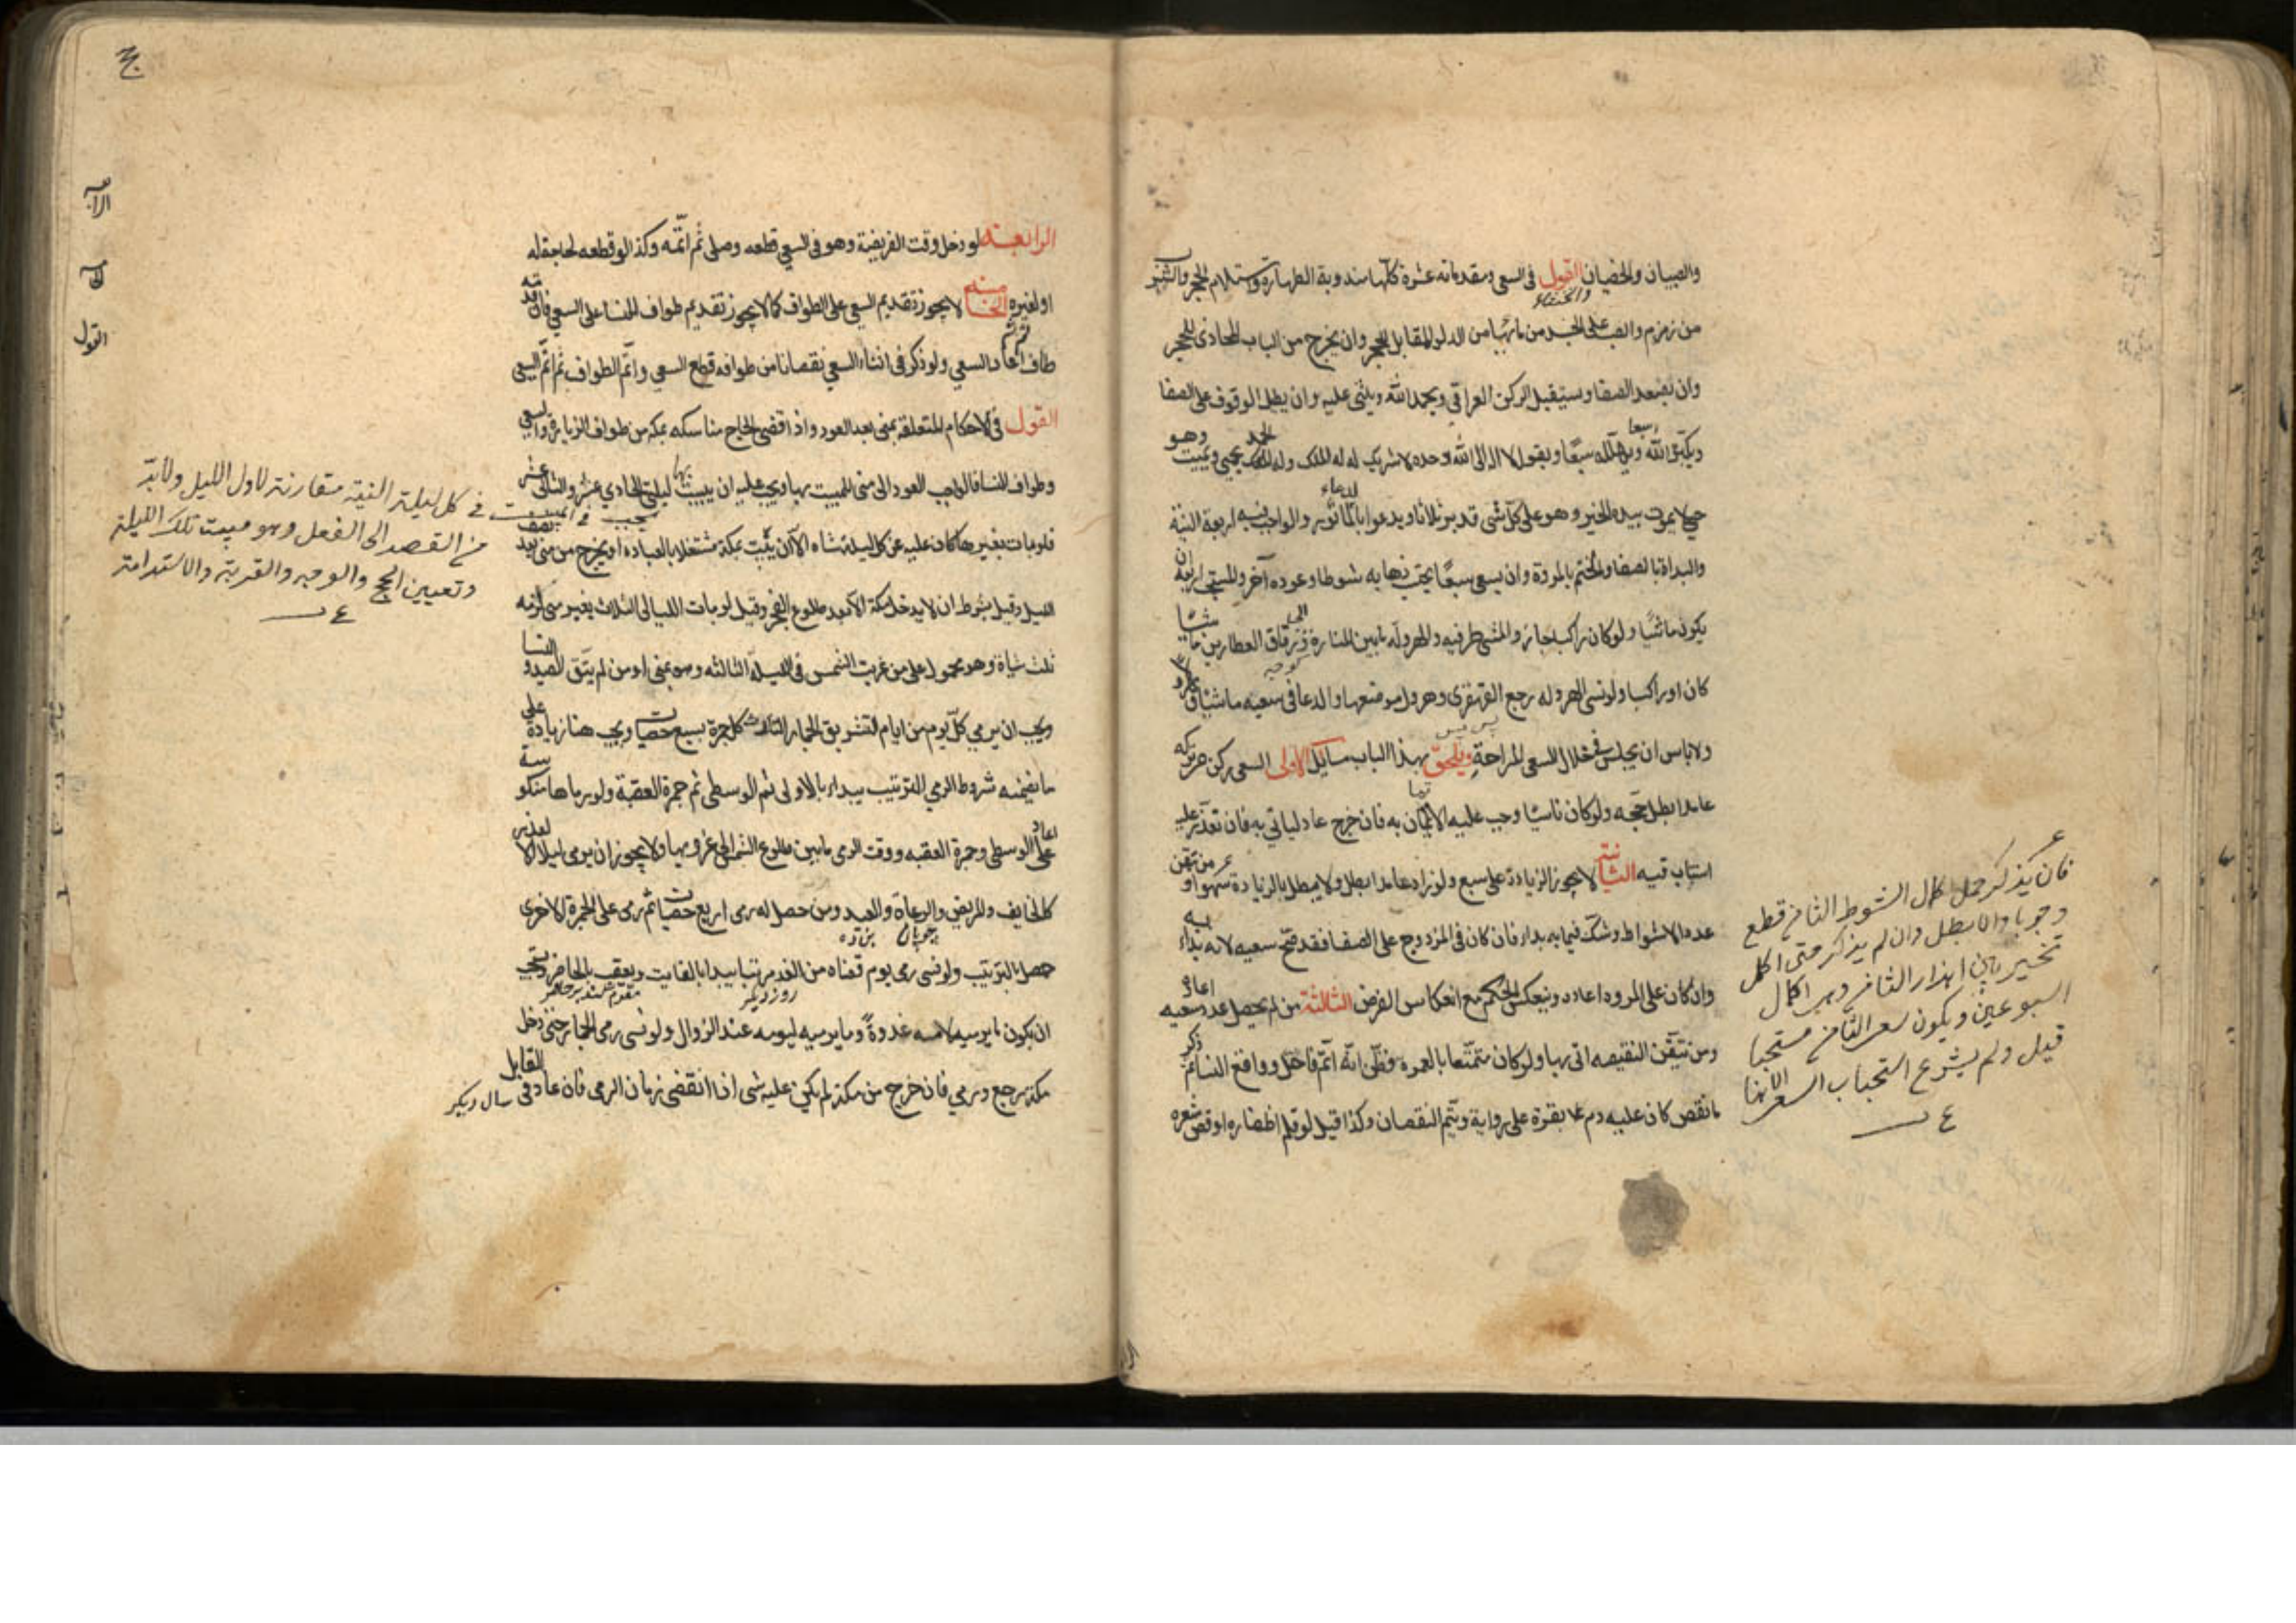 والصبيان والخصيان القول فى السعى ومقدماته عشرة كلها مندوبة الطهارة واستلام الحجر والشرب
والخنثاء
من زمزم والصب على الجسد من مائها من الدلو المقابل للحجر وان يخرج من الباب المحاذى للحجر
وان يصعد الصفا ويستقبل الركن العراقى ويحمد الله ويثنى عليه وان يطيل الوقوف على الصفا
ويكبر الله سبعا ويهلله سبعا ويقول لا اله الا الله وحده لا شريك له له الملك وله الحمد يحيى ويميت وهو
حى لا يموت بيده الخير وهو على كل شى قدير ثلاثا ويدعوا بالدعاء المأثور والواجب فيه اربعة النية
والبداة بالصفا والختم بالمروة وان يسعى سبعا يحتسب ذهابه شوطا وعوده آخر والمستحب اربعة ان
يكون ماشيا ولو كان راكبا جاز والمشى طرفيه والهروله مابين المنارة وزقاق العطارين ماشيا
كوچه
كان او راكبا ولو نسى الهروله رجع القهقرى وهرول موضعها والدعا فى سعيه ماشيا ومهرولا
پس پس
ولا باس ان يجلس فى خلال السعى للراحة ويلحق بهذا الباب مسايل الاولى السعى ركن من تركه
عامدا بطل حجه ولو كان ناسيا وجب عليه الاتيان به فان خرج عاد لياتى به فان تعذر عليه
استناب فيه الثانية لا يجوز الزيادة على سبع ولو زاد عامدا بطل ولا يبطل بالزيادة سهوا ومن تيقن
عدد الاشواط وشك فيما به بداء فان كان فى المزدوج على الصفا فقد صح سعيه لانه بداء به
وان كان على المروه اعاد وينعكس الحكم مع انعكاس الفرض الثالثة من لم يحصل عدد سعيه اعاده
ومن تيقن النقيصه اتى بها ولو كان متمتعا بالعمره وظن انه اتم فاحل وواقع النسا ثم ذكر
ما نقص كان عليه دم بقرة على رواية ويتم النقصان وكذا قيل لو قلم اظفاره او قص شعره
فان يذكر قبل اكمال الشوط الثامن قطع
وجوبا والا بطل وان لم يذكر حتى اكمل
تخير بين اهدار الثامن وبين اكمال
اسبوعين ويكون سعى الثامن مستحبا
قيل ولم يشرع استحباب السعى الا هنا
ع
الرابعة لو دخل وقت الفريضة وهو فى السعى قطعه وصلى ثم اتمه وكذا لو قطعه لحاجة له
او لغيره الخامسة لا يجوز تقديم السعى على الطواف كما لا يجوز تقديم طواف النسا على السعى فان قدمه
طاف ثم اعاد السعى ولو ذكر فى اثناء السعى نقصانا من طوافه قطع السعى واتم الطواف ثم اتم السعى
القول فى الاحكام المتعلقة بمنى بعد العود واذا قضى الحاج مناسكه بمكه من طواف الزيارة والسعى
وطواف النسا فالواجب العود الى منى للمبيت بها ويجب عليه ان يبيت بها ليلتى الحادي عشر والثانى عشر
فلو بات بغيرها كان عليه عن كل ليلة شاه الا ان يبيت بمكة مشتغلا بالعبادة او يخرج من منى بعد نصف
الليل وقيل بشرط ان لا يدخل مكة الا بعد طلوع الفجر وقيل لو بات الليالى الثلاث بغير منى لزمه
ثلث شياة وهو محمول على من غربت الشمس فى الليلة الثالثه وهو بمنى او من لم يتق الصيد والنسا
ويجب ان يرمي كل يوم من ايام التشريق الجمار الثلاث كل جمرة بسبع حصيات ويجب هنا زيادة على
ما تضمنه شروط الرمي الترتيب يبداء بالاولى ثم الوسطى ثم جمرة العقبة ولو رماها منكوسة
اعاد على الوسطى وجمرة العقبه ووقت الرمى مابين طلوع الشمس الى غروبها ولا يجوز ان يرمى ليلا الا لعذر
كالخايف والمريض والرعاة والعبد ومن حصل له رمى اربع حصيات ثم رمى على الجمرة الاخرى
چوپان بنده
حصل بالترتيب ولو نسى رمى يوم قضاه من الغد مرتبا يبدا بالفايت ويعقب بالحاضر ويستحب
روز ديكر
ان يكون مايرميه لامسه غدوة ومايرميه ليومه عند الزوال ولو نسى رمى الجمار حتى دخل
مكة رجع ورمي فان خرج من مكة لم يكن عليه شى اذا انقضى زمان الرمى فان عاد فى القابل
سال ديكر
فى كل ليلة النية مقارنة لاول الليل ولابد
من القصد الى الفعل وهو مبيت تلك الليلة
وتعيين الحج والوجه والقربة والاستدامة
ع
القول